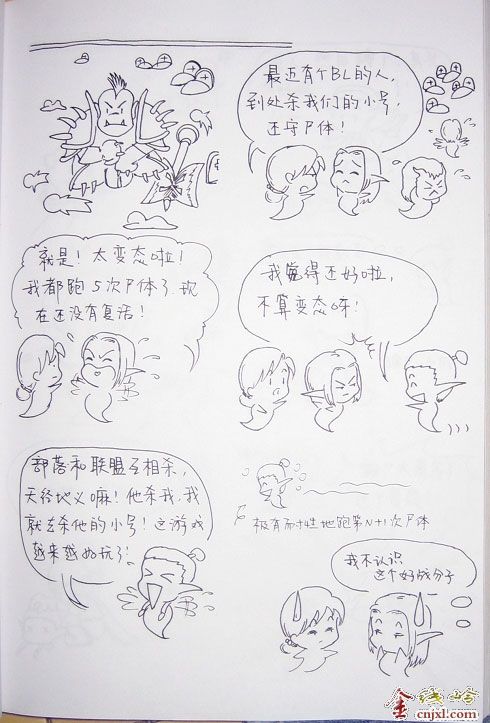 最近有个BL的人,
到处杀我们的小号,
还守尸体!
就是!太变态啦!
我都跑5次尸体了.现
在还没有复活!
我觉得还好啦,
不算变态呀!
部落和联盟互相杀,
天经地义嘛!他杀我,我
就去杀他的小号!这游戏
越来越好玩了!
极有耐性地跑第N+1次尸体
我不认识
这个好战分子
cnjxl.com